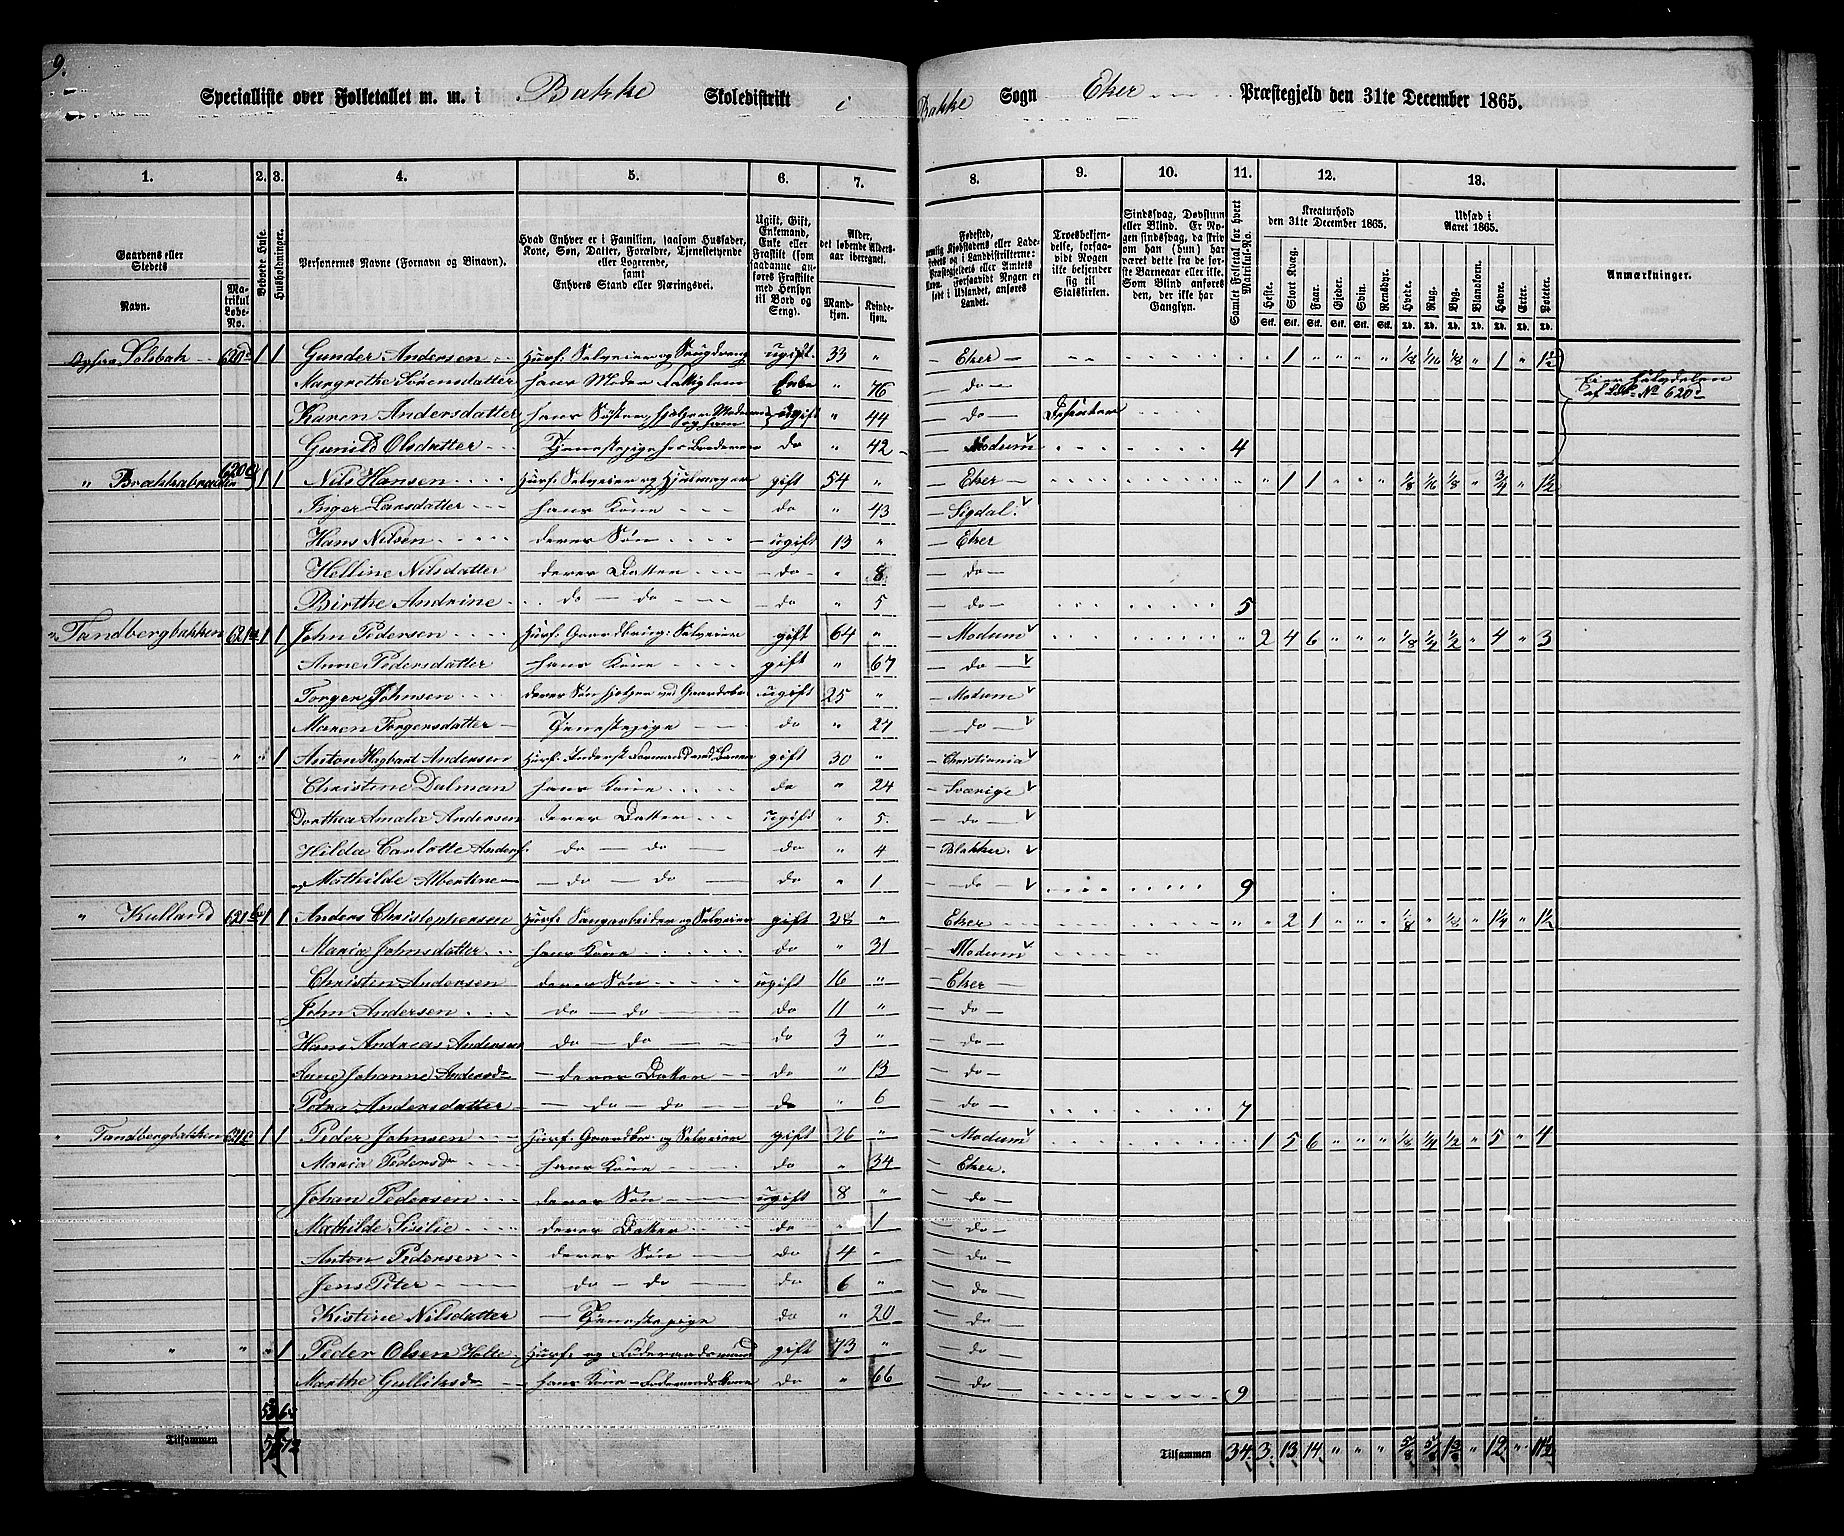 9.
Specialliste over Folketallet m. m. i Bakke Skoledistrikt i Bakke Sogn Eker Præstegjeld den 31te December 1865.
1. 2. 3. 4. 5. 6. 7. 8. 9. 10. 11. 12. 13.
Gaardens eller Stedets
Navn.
Matrikul Løbe-No.
Beboede Huse.
Husholdninger.
Personernes Navne (Fornavn og Binavn).
Hvad Enhver er i Familien, saasom Husfader, Kone, Søn, Datter, Forældre, Tjenestetyende eller Logerende, samt Enhvers Stand eller Næringsvei.
Ugift, Gift, Enkemand, Enke eller Fraskilt (som saadanne anføres Fraskilte med Hensyn til Bord og Seng).
Alder, det løbende Aldersaar iberegnet.
Mandkjøn. Kvindekjøn.
Fødested,
Troesbekjendelse, forsaavidt Nogen ikke bekjender sig til Statskirken.
Sindssvag, Døvstum eller Blind. Er Nogen sindssvag, da skrives om han (hun) har været dette fra de første Barneaar eller ikke. Som Blind anføres den, der ikke har Gangsyn.
Samlet Folketal for hvert Matrikul-No.
Kreaturhold den 31te December 1865.
Heste. Stort Kvæg. Faar. Gjeder. Svin. Rensdyr.
Udsæd i Aaret 1865.
Hvede. Rug. Byg. Blandkorn. Havre. Erter. Poteter.
Anmærkninger.
Solsbak 620 1 1 Gunder Andersen ugift 33 " Eker 1 " " " " 1/8 1/16 1/8 " 1 " 1½
Margrethe Sørensdatter hans Moder Enke " 76 do
Karen Andersdatter hans Søster ugift " 44 do
Gunild Olsdatter Tjenestepige do " 42 Modum 4
" 620 1 1 Nils Hansen Husf. Selveier og gift 54 " Eker " 1 1 " " " 1/8 1/16 1/8 " 3/4 " 1½
Inger Larsdatter hans Kone do " 43 Sigdal
Hans Nilsen deres Søn ugift 13 " Eker
Helline Nilsdatter deres Datter do " 8 do
Birthe Andrine do do do " 5 do 5
" Tandbergbakken 621a 1 1 John Pedersen Husf. Gaardbrug. Selveier gift 64 " Modum " 2 4 6 " " " 1/8 ½ " 4 " 3
Anne Pedersdatter hans Kone gift " 67 do
Torger Johnsen deres Søn hjelper ved ugift 25 " Modum
Maren Torgersdatter Tjenestepige do " 27 do
" " " 1 Anton Hagbart Andersen gift 30 " Christiania
Christine Dalman hans Kone do " 24 Sværige
Dorthea Amalie Andersen deres Datter ugift " 5 do
Hilda Carlotte Anders. do do do " 4 Blakker
Mathilde Albertine do do do " 1 do 9
" Kulland 621b 1 1 Anders Christophersen Husf. og Selveier gift 38 " Eker " " 2 1 " " " 1/8 " ½ " 1¼ " 1½
Maria Johnsdatter hans Kone do " 31 Modum
Christen Andersen deres Søn ugift 16 " Eker
John Andersen do do do 11 " do
Hans Andreas Andersen do do do 3 " do
Anne Johanne Andersd deres Datter do " 13 do
Petra Andersdatter do do do " 6 do 7
" Tandbergbakken 621c 1 1 Peder Johnsen Husf. Gaardbr. og Selveier gift 26 " Modum 1 5 6 " " " 1/8 ¼ ½ " 5 " 4
Maria Pedersd hans Kone do " 34 Eker
Johan Pedersen deres Søn ugift 8 " do
Mathilde Sisilie deres Datter do " 1 do
Anton Pedersen deres Søn do 4 " do
Jens Peter do do do 6 " do
Kistine Nilsdatter Tjenestepige do " 20 do
" " " 1 Peder Olsen Holte Husf. og Føderaadsmand gift 73 " do
Marthe Gullitsd hans Kone do " 66 do 9
Tilsammen
Tilsammen 34 3 13 14 " " " " 12 " 11½